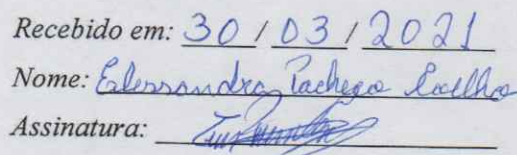 Recebido em: 30 / 03 / 2021
Nome: Elessandra Pacheco Coelho
Assinatura: